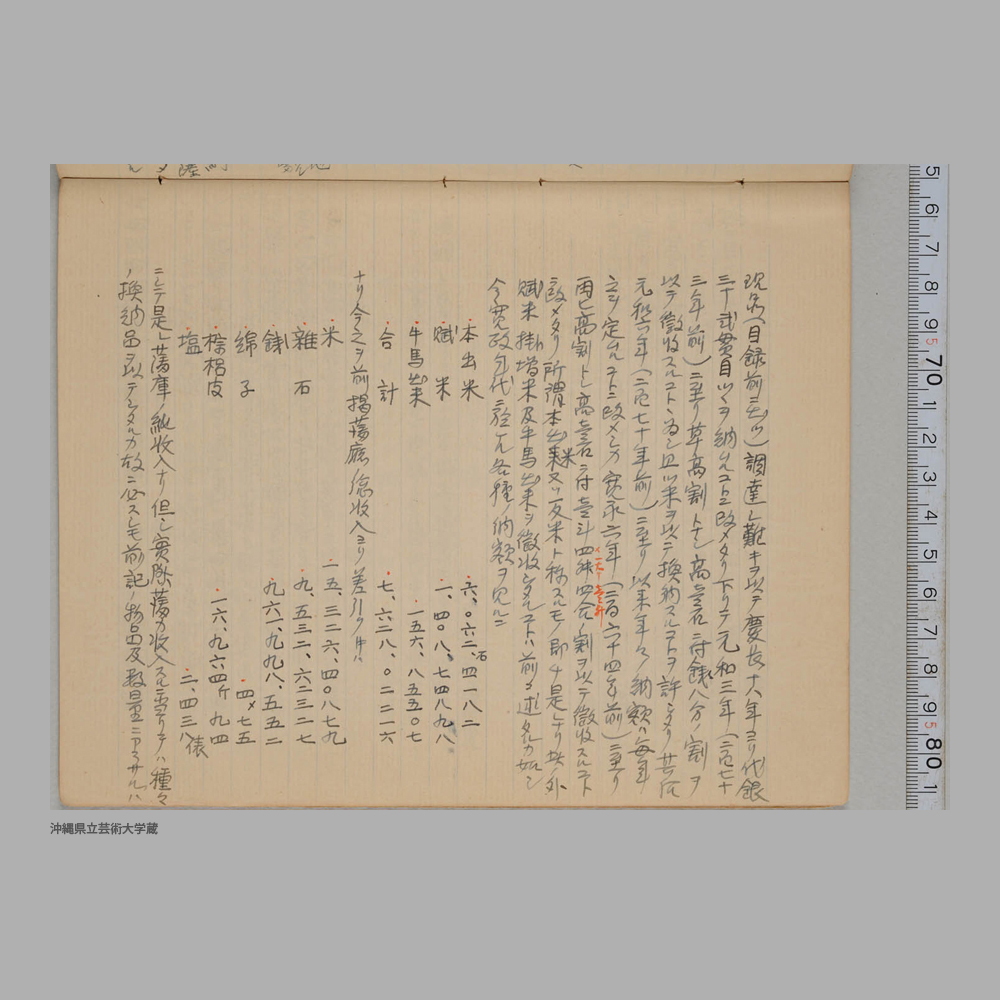 現品(目録前ニ出ツ)調達シ難キヲ以テ慶長十八年ヨリ代銀
三十貳貫目ツヽヲ納ルコトニ改メタリ下リテ元和三年(二百七十
三年前)ニ至リ草高割トナシ高壹石ニ付銀八分ノ割ヲ
以テ徴收スルコトヽ為シ且ツ米ヲ以テ換納スルコトヲ許シタリ其后
元和六年(二百七十年前)ニ至リ以来年々ノ納額ハ毎年
之ヲ定ルコトニ改メシカ寛永六年(二百六十四年前)ニ至リ
再ヒ高割トシ高壹石ニ付壹斗四舛四合ノ割ヲ以テ徴收スルコトニ
改メタリ所謂本出米又ハ反米ト称スルモノ即チ是ナリ其外
賦米掛増米及牛馬出米ヲ徴收シタルコトハ前ニ述タルカ如シ
今寛政年代ニ於ケル各種ノ納額ヲ見ルニ
本出米 六、〇六二、四一八二石
賦米 一、四〇八、七四八九八
牛馬出米 一五六、八五五〇七
合計 七、六二八、〇二二一六
ナリ今之ヲ前揭藩廳ノ總收入ヨリ差引クキハ
米 一五、三二六、四〇八七九
雑石 九、五三二、六二三二七
銭 九六一、九九八、五五二
綿子 四〆七五
棕梠皮 一六、九六四斤九四
塩 二、四三八俵
ニシテ是レ藩庫ノ純收入ナリ但シ實際藩カ收入スルニ當リテハ種々
ノ換納品ヲ以テシタルカ故ニ必スシモ前記ノ物品及数量ニアラサルハ
沖縄県立芸術大学蔵
5 6 7 8 9 5 70 1 2 3 4 5 6 7 8 9 5 80 1